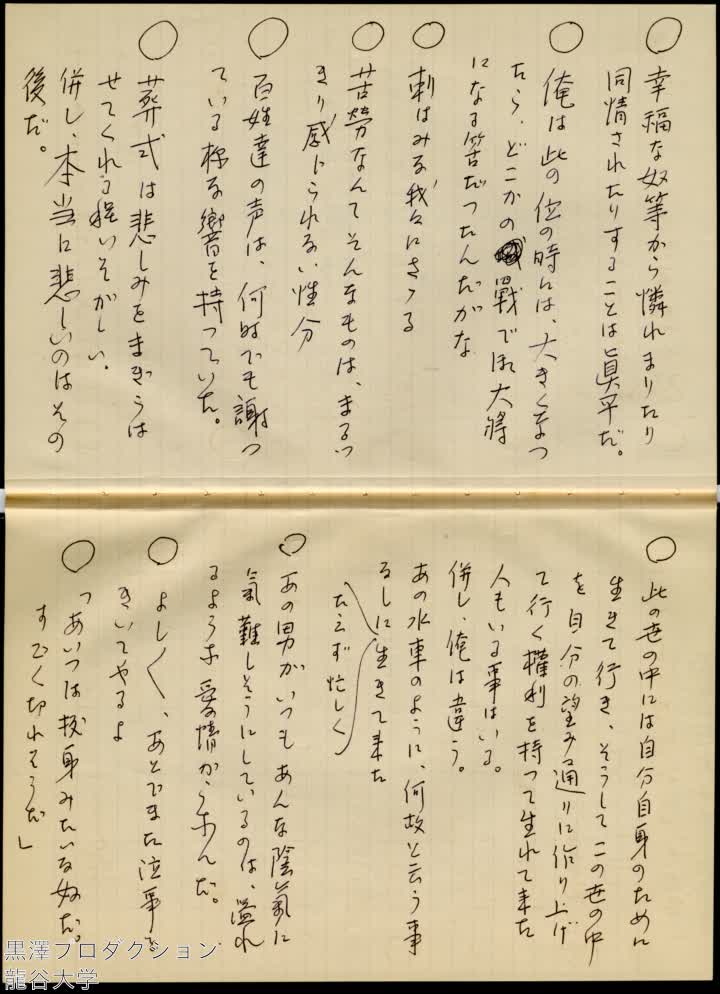 ○幸福な奴等から憐れまりたり
同情されたりすることは眞平だ。
○俺は此の位の時には、大きくなつ
たら、どこかの戰では大將
になる筈だつたんだがな
○斬はみる我々にさゝる
○苦勞なんてそんなものは、まるつ
きり感じられない性分
○百姓達の声は、何時でも謝つ
ている樣な響を持つていた。
○葬式は悲しみをまぎらは
せてくれる程いそがしい。
併し、本当に悲しいのはその
後だ。
○此の世の中には自分自身のために
生きて行き、そうしてこの世の中
を自分の望みる通りに作り上げ
て行く權利を持つて生れて来た
人もいる事はいる。
併し、俺は違う。
あの水車のように、何故と云う事
なしに生きて来た
たえず忙しく
○あの男がいつもあんな陰氣に
氣難しそうにしているのは、溢れ
るような愛情からなんだ。
○よし〱、あとでまた泣事を
きいてやるよ
○「あいつは抜身みたいな奴だ。
すごく切れそうだ」
黒澤プロダクション
龍谷大学